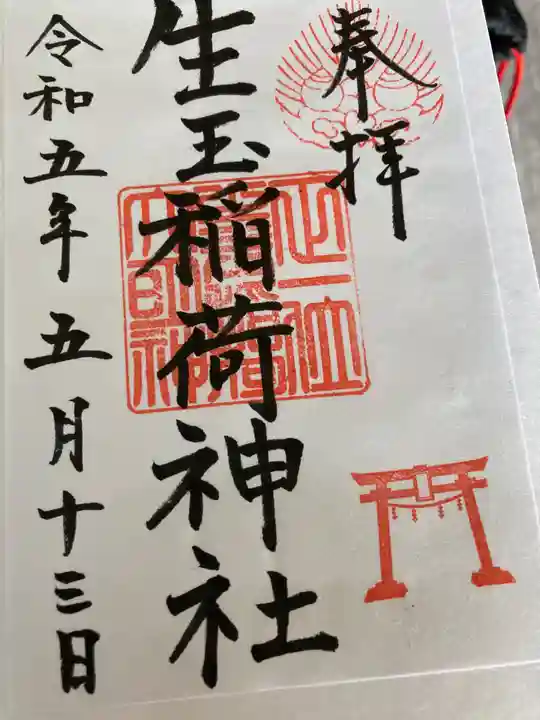 奉拝
生玉稲荷神社
令和五年五月十三日
正一位